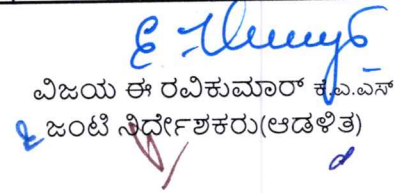 ವಿಜಯ ಈ ರವಿಕುಮಾರ್ ಕೆ.ಎ.ಎಸ್
ಜಂಟಿ ನಿರ್ದೇಶಕರು(ಆಡಳಿತ)